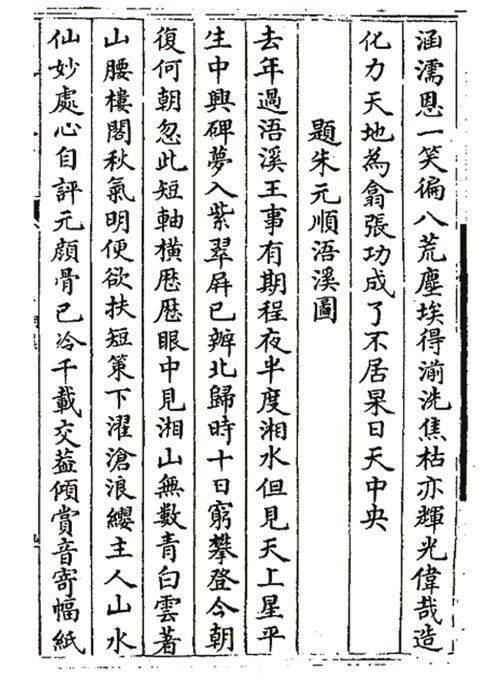 涵濡恩一笑徧八荒塵埃得湔洗焦枯亦輝光偉哉造
化力天地為翕張功成了不居杲日天中央
題朱元順浯溪圖
去年過浯溪王事有期程夜半度湘水但見天上星平
生中興碑夢入紫翠屏已辦北歸時十日窮攀登今朝
復何朝忽此短軸橫歷歷眼中見湘山無數青白雲著
山腰樓閣秋氣明便欲扶短策下濯滄浪纓主人山水
仙妙處心自評元顏骨已冷千載交葢傾賞音寄幅紙